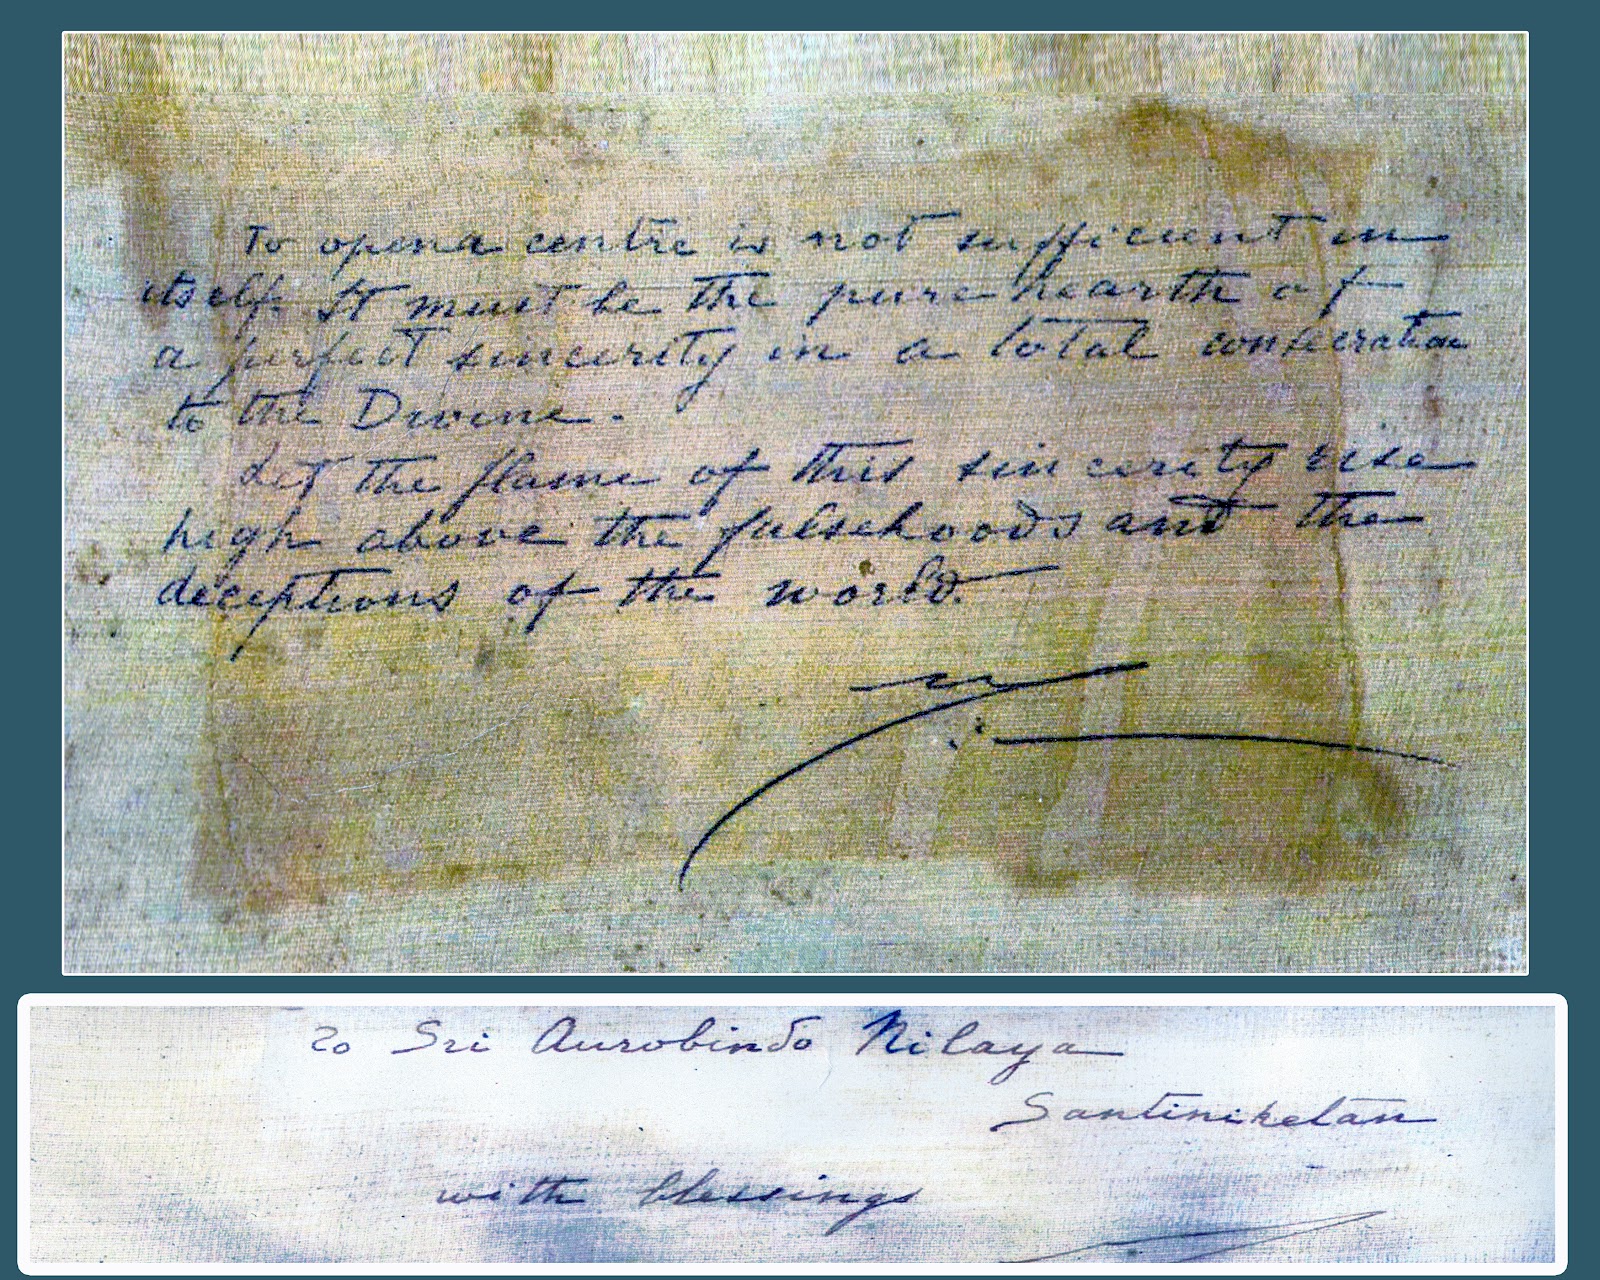 To open a centre is not sufficient in
itself. It must be the pure hearth of
a perfect sincerity in a total consecration
to the Divine.
Let the flame of this sincerity rise
high above the falsehoods and the
deceptions of the world.
To Sri Aurobindo Nilaya
Santiniketan
with blessings